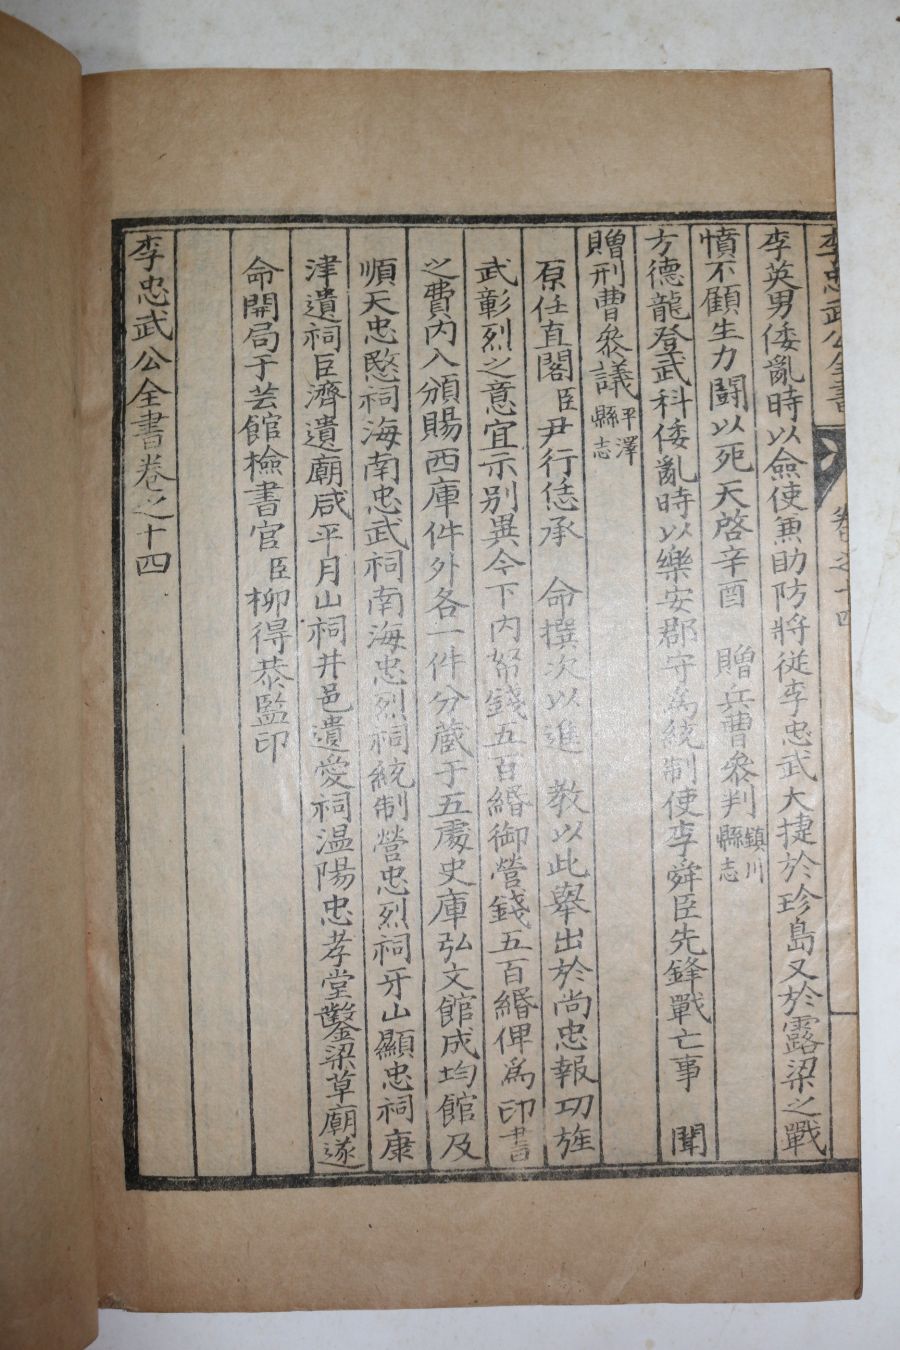 李忠武公全書 卷之十四
李英男倭亂時以僉使兼助防將從李忠武大捷於珍島又於露梁之戰
憤不顧生力鬪以死天啓辛酉 贈兵曹叅判鎮川縣志
方德龍登武科倭亂時以樂安郡守為統制使李舜臣先鋒戰亡事 聞
贈刑曹叅議平澤縣志
原任直閣臣尹行恁承 命撰次以進 教以此舉出於尚忠報功旌
武彰烈之意宜示別異今下內帑錢五百緡御營錢五百緡俾為印書
之費內入頒賜西庫件外各一件分藏于五處史庫弘文館成均館及
順天忠愍祠海南忠武祠南海忠烈祠統制營忠烈祠牙山顯忠祠康
津遺祠巨濟遺廟咸平月山祠井邑遺愛祠温陽忠孝堂鑿梁草廟遂
命開局于芸館檢書官臣柳得恭監印
李忠武公全書卷之十四